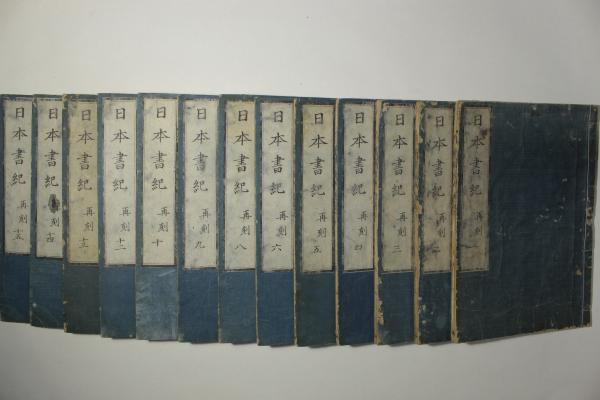 日本書紀 再刻 一
日本書紀 再刻 二
日本書紀 再刻 三
日本書紀 再刻 四
日本書紀 再刻 五
日本書紀 再刻 六
日本書紀 再刻 八
日本書紀 再刻 九
日本書紀 再刻 十
日本書紀 再刻 十二
日本書紀 再刻 十三
日本書紀 再刻 十四
日本書紀 再刻 十五